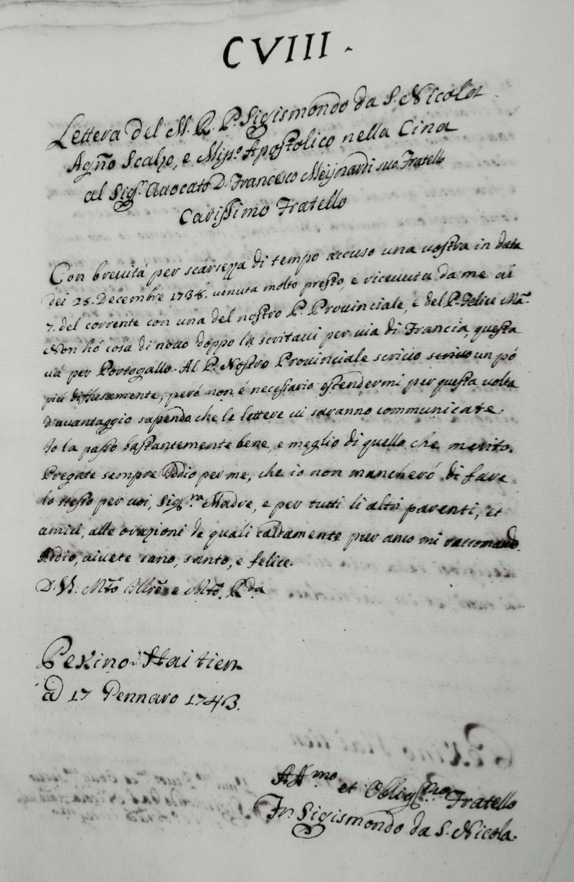 CVIII.
Lettera del M. R. P. Sigismondo da S. Nicola
Agñō Scalzo, e Miss.º Apostolico nella Cina
al Sig.r Avocato D. Francesco Meijnardi suo Fratello
Carissimo Fratello
Con brevità per scarsezza di tempo accuso una vostra in data
dei 25. Decembre 1738. venuta molto presto, e ricevuta da me ai
7. del corrente con una del nostro P. Provinciale, e del P. Felice Ma.
Non hò cosa di novo doppo la scrittavi per via di Francia, questa
và per Portogallo. Al P. Nostro Provinciale scrivo scrivo un pò
più diffusamente, però non è necessario estendermi per questa volta
d'avantaggio sapendo che le lettere vi saranno communicate.
Io la passo bastantemente bene, e meglio di quello che merito.
Pregate sempre Iddio per me, che io non mancherò di fare
lo stesso per voi, Sig.ra Madre, e per tutti li altri parenti, et
amici, alle orazioni de quali caldamente pur anco mi raccomando.
Addio, vivete sano, santo, e felice.
D. V. Mto Illre e Mto Rda
Pekino Haitien
a dì 17 Gennaro 1743.
Aff.mo et Oblig.mo Fratello
Fr. Sigismondo da S. Nicola